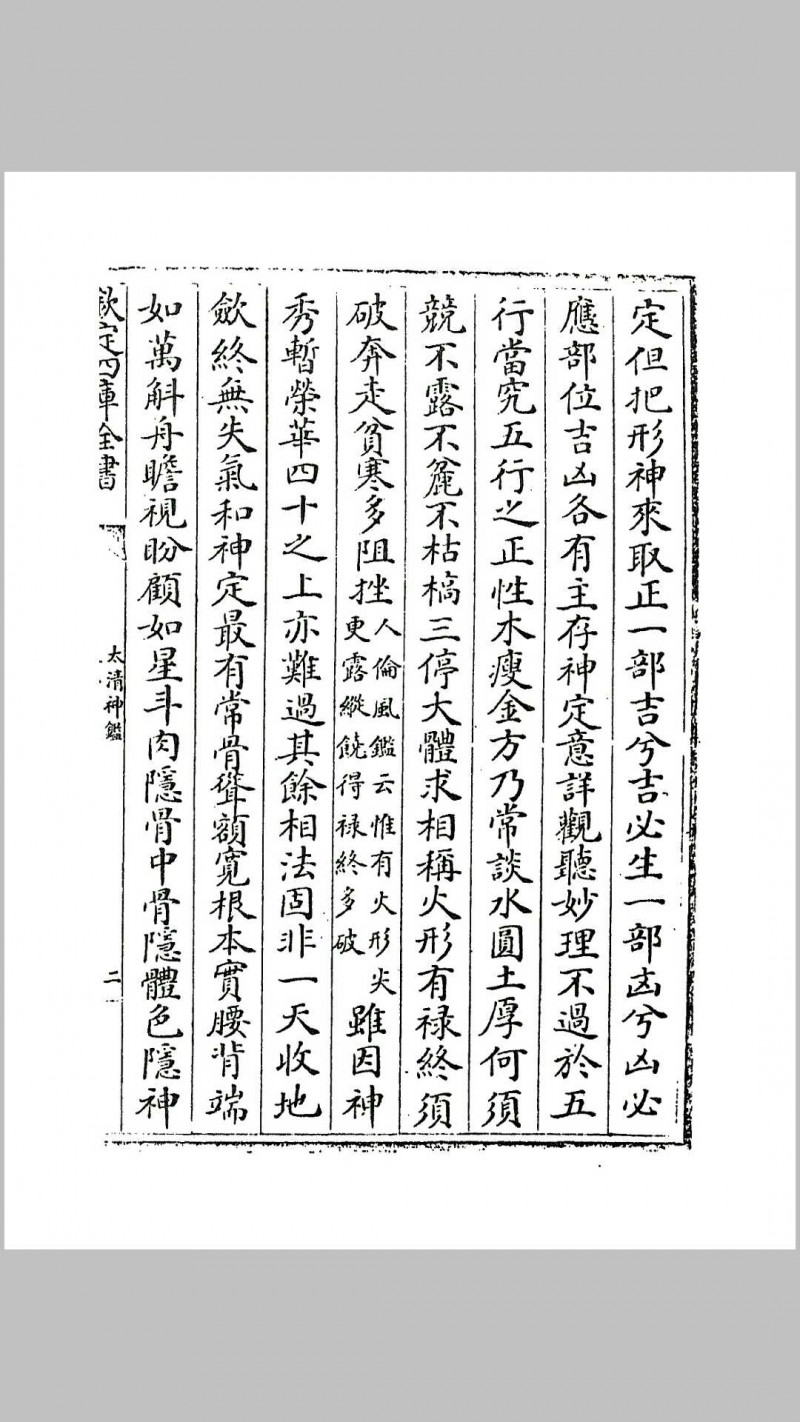 定但把形神來取正一部吉兮吉必生一部凶兮凶必
應部位吉凶各有主存神定意詳觀聽妙理不過於五
行當究五行之正性木瘦金方乃常談水圓土厚何須
競不露不麄不枯槁三停大體求相稱火形有禄終須
破奔走貧寒多阻挫
人倫風鑑云惟有火形尖
更露縱饒得禄終多破
雖因神
秀暫榮華四十之上亦難過其餘相法固非一天收地
歛終無失氣和神定最有常骨聳額寛根本實腰背端
如萬斛舟瞻視盼顧如星斗肉隱骨中骨隱體色隱神
欽定四庫全書
太清神鑑
二